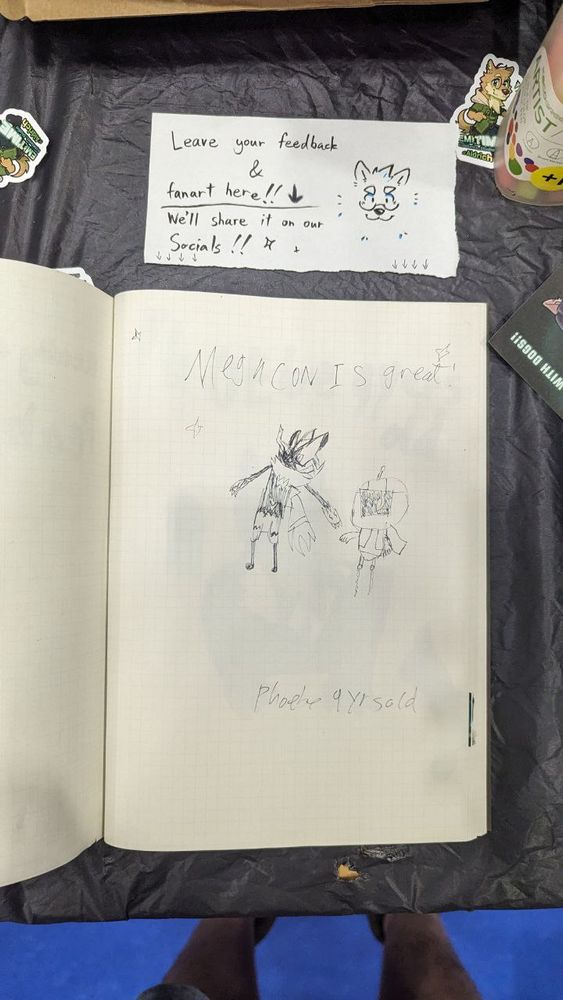 Leave your feedback
&
fanart here!! ↓
We'll share it on our
Socials!!
MegaCON IS great!
Phoebe 9yrsold
ARTIST
WITH DOGS!!